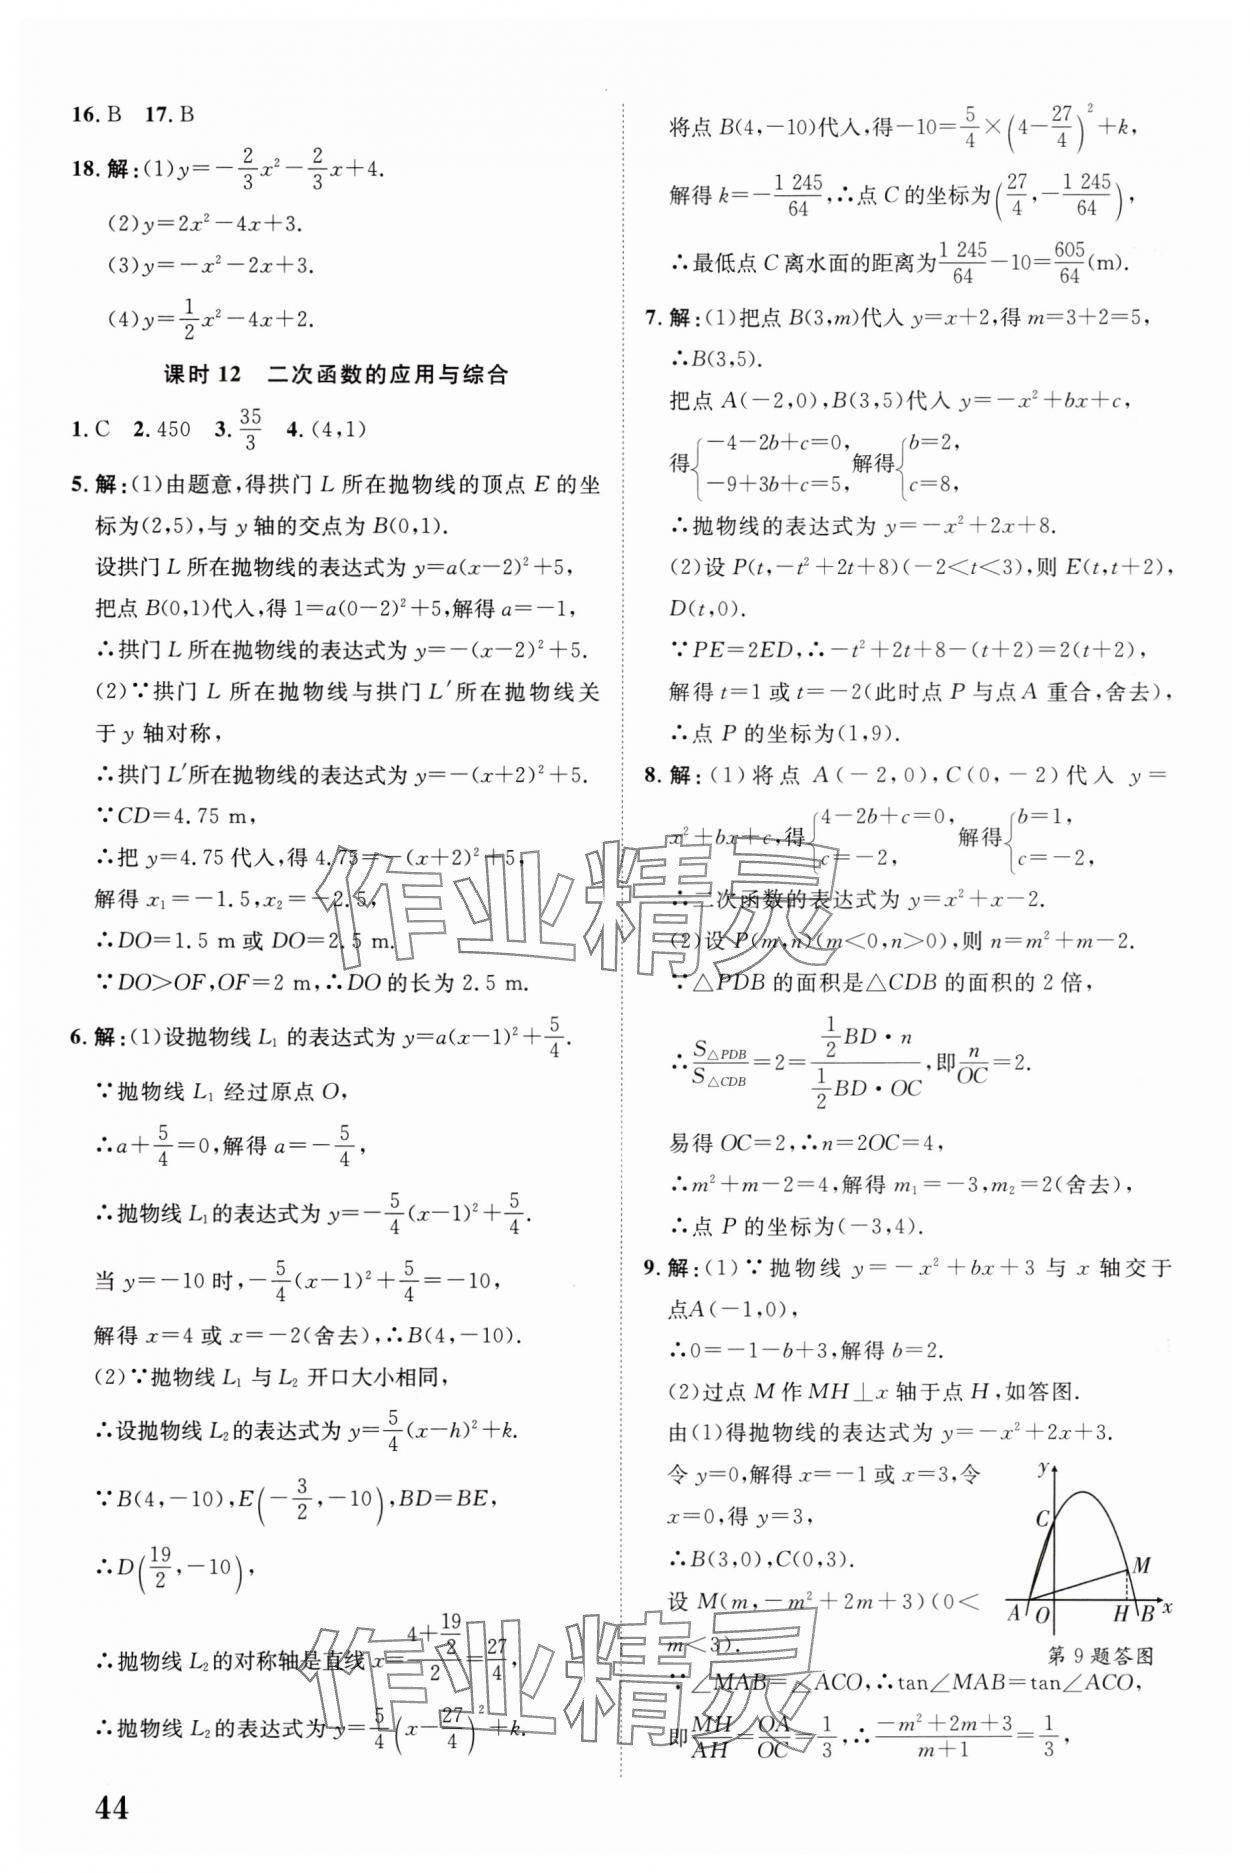 16. B  17. B
18. 解:(1)y=-2/3x²-2/3x+4.
(2)y=2x²-4x+3.
(3)y=-x²-2x+3.
(4)y=1/2x²-4x+2.
课时 12  二次函数的应用与综合
1. C  2. 450  3. 35/3  4. (4,1)
5. 解:(1)由题意,得拱门 L 所在抛物线的顶点 E 的坐
标为(2,5),与 y 轴的交点为 B(0,1).
设拱门 L 所在抛物线的表达式为 y=a(x-2)²+5,
把点 B(0,1)代入,得 1=a(0-2)²+5,解得 a=-1,
∴拱门 L 所在抛物线的表达式为 y=-(x-2)²+5.
(2)∵拱门 L 所在抛物线与拱门 L′所在抛物线关
于 y 轴对称,
∴拱门 L′所在抛物线的表达式为 y=-(x+2)²+5.
∵CD=4.75 m,
∴把 y=4.75 代入,得 4.75=-(x+2)²+5,
解得 x₁=-1.5,x₂=-2.5,
∴DO=1.5 m 或 DO=2.5 m.
∵DO>OF,OF=2 m,∴DO 的长为 2.5 m.
6. 解:(1)设抛物线 L₁ 的表达式为 y=a(x-1)²+5/4.
∵抛物线 L₁ 经过原点 O,
∴a+5/4=0,解得 a=-5/4,
∴抛物线 L₁的表达式为 y=-5/4(x-1)²+5/4.
当 y=-10 时,-5/4(x-1)²+5/4=-10,
解得 x=4 或 x=-2(舍去),∴B(4,-10).
(2)∵抛物线 L₁ 与 L₂ 开口大小相同,
∴设抛物线 L₂的表达式为 y=5/4(x-h)²+k.
∵B(4,-10),E(-3/2,-10),BD=BE,
∴D(19/2,-10),
∴抛物线 L₂的对称轴是直线 x=(4+19/2)/2=27/4,
∴抛物线 L₂的表达式为 y=5/4(x-27/4)²+k.
44
将点 B(4,-10)代入,得-10=5/4×(4-27/4)²+k,
解得 k=-1 245/64,∴点 C 的坐标为(27/4,-1 245/64),
∴最低点 C 离水面的距离为1 245/64-10=605/64(m).
7. 解:(1)把点 B(3,m)代入 y=x+2,得 m=3+2=5,
∴B(3,5).
把点 A(-2,0),B(3,5)代入 y=-x²+bx+c,
得{-4-2b+c=0, -9+3b+c=5, 解得{b=2, c=8,
∴抛物线的表达式为 y=-x²+2x+8.
(2)设 P(t,-t²+2t+8)(-2<t<3),则 E(t,t+2),
D(t,0).
∵PE=2ED,∴-t²+2t+8-(t+2)=2(t+2),
解得 t=1 或 t=-2(此时点 P 与点A 重合,舍去),
∴点 P 的坐标为(1,9).
8. 解:(1)将点 A(-2,0),C(0,-2)代入 y=
x²+bx+c,得{4-2b+c=0, c=-2, 解得{b=1, c=-2,
∴二次函数的表达式为 y=x²+x-2.
(2)设 P(m,n)(m<0,n>0),则 n=m²+m-2.
∵△PDB 的面积是△CDB 的面积的 2 倍,
∴S△PDB/S△CDB=2=(1/2BD·n)/(1/2BD·OC),即n/OC=2.
易得 OC=2,∴n=2OC=4,
∴m²+m-2=4,解得 m₁=-3,m₂=2(舍去),
∴点 P 的坐标为(-3,4).
9. 解:(1)∵抛物线 y=-x²+bx+3 与 x 轴交于
点A(-1,0),
∴0=-1-b+3,解得 b=2.
(2)过点 M 作 MH⊥x 轴于点 H,如答图.
由(1)得抛物线的表达式为 y=-x²+2x+3.
令 y=0,解得 x=-1 或 x=3,令
x=0,得 y=3,
∴B(3,0),C(0,3).
设 M(m,-m²+2m+3)(0<
m<3).
y
C
M
A O H B x
第 9 题答图
∵∠MAB=∠ACO,∴tan∠MAB=tan∠ACO,
即MH/AH=OA/OC=1/3,∴(-m²+2m+3)/(m+1)=1/3,
作业精灵
作业精灵